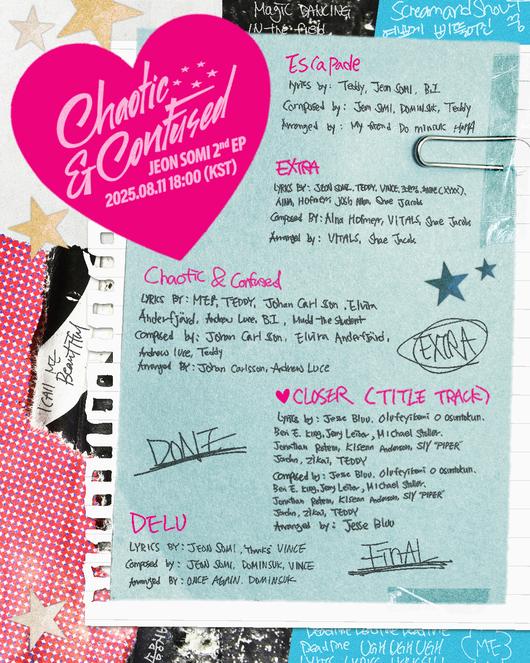 MAGIC DANCING
IN the field
Scream and Shout
Chaotic
& Confused
JEON SOMI 2nd EP
2025.08.11 18:00 (KST)
Escapade
lyrics by: Teddy, Jeon SOMI, B.I
Composed by: Jeon SOMI, DOMINSUK, Teddy
Arranged by: My friend Do minsuk HAHA
EXTRA
LYRICS BY: JEON SOMI, TEDDY, VINCE,
AINA, Hofmeyr, Shae Jacobs
Composed BY: Aina Hofmeyr, VITALS, Shae Jacobs
Arranged by: VITALS, Shae Jacobs
Chaotic & Confused
LYRICS BY: TEDDY, Johan Carlsson, Elvira
Anderfjärd, Andrew Luce, B.I, Mudd the Student
Composed by: Johan Carlsson, Elvira Anderfjärd,
Andrew Luce, Teddy
Arranged BY: Johan Carlsson, Andrew Luce
EXTRA
I CALL ME
Beautiful
CLOSER (TITLE TRACK)
Lyrics by: Jesse Bluu, Olufeyikemi O osuntokun,
Ben E. King, Jerry Leiber, Michael Stoller,
Jonathan Rotem, Kisean Anderson, SLY "PIPER"
Jordan, Zikai, TEDDY
Composed by: Jesse Bluu, Olufeyikemi O osuntokun,
Ben E. King, Jerry Leiber, Michael Stoller,
Jonathan Rotem, Kisean Anderson, SLY "PIPER"
Jordan, Zikai, TEDDY
Arranged by: Jesse Bluu
DONE
DELU
LYRICS BY: JEON SOMI, thanks VINCE
Composed by: JEON SOMI, DOMINSUK, VINCE
Arranged BY: ONCE AGAIN. DOMINSUK
FINAL
UGH UGH UGH
(ME)